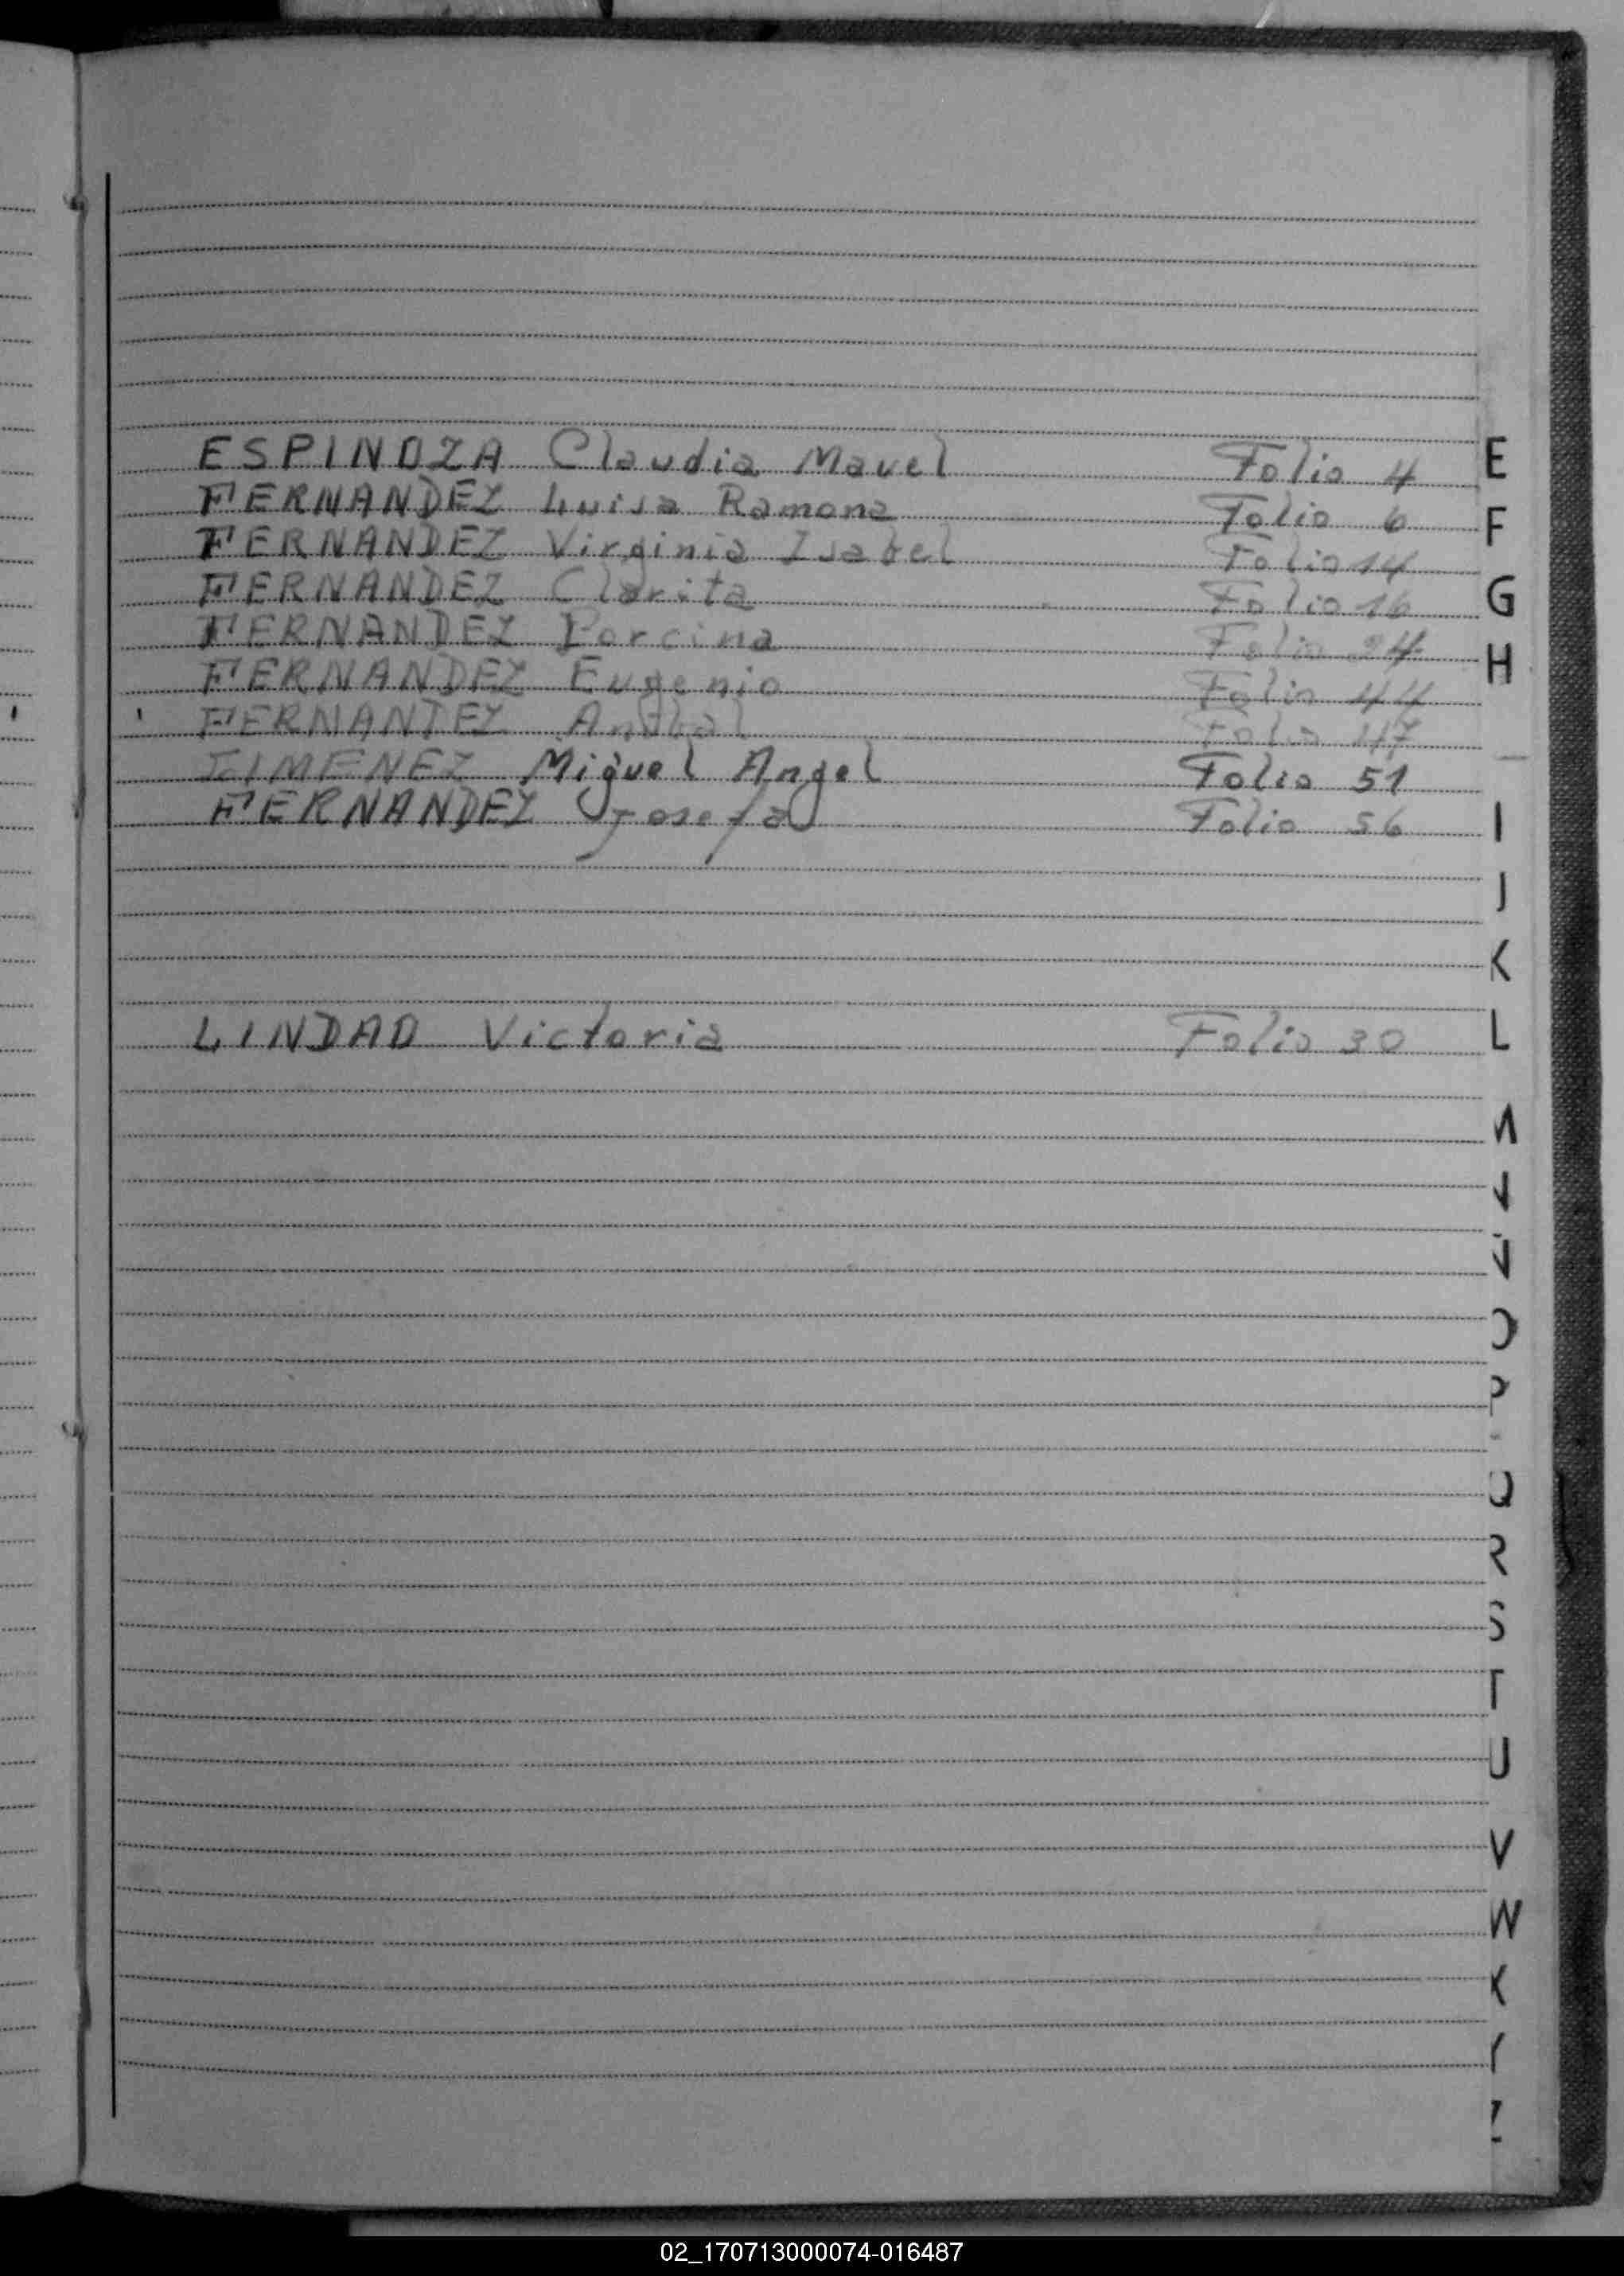 ESPINOZA Claudia Mavel Folio 4 E
FERNANDEZ Luisa Ramona Folio 6 F
FERNANDEZ Virginia Isabel Folio 14
FERNANDEZ Clarita Folio 16 G
FERNANDEZ Porcina Folio 24 H
FERNANDEZ Eugenio Folio 44
FERNANDEZ Anibal Folio 47
JIMENEZ Miguel Angel Folio 51
FERNANDEZ Josefa Folio 56 I
J
K
LINDAO Victoria Folio 30 L
M
N
Ñ
O
P
Q
R
S
T
U
V
W
X
Y
Z
02_170713000074-016487